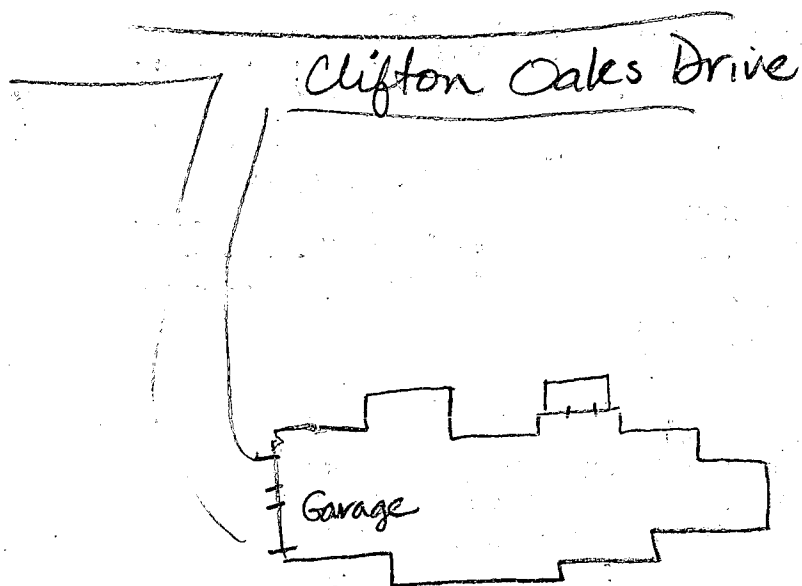 Clifton Oaks Drive
Garage